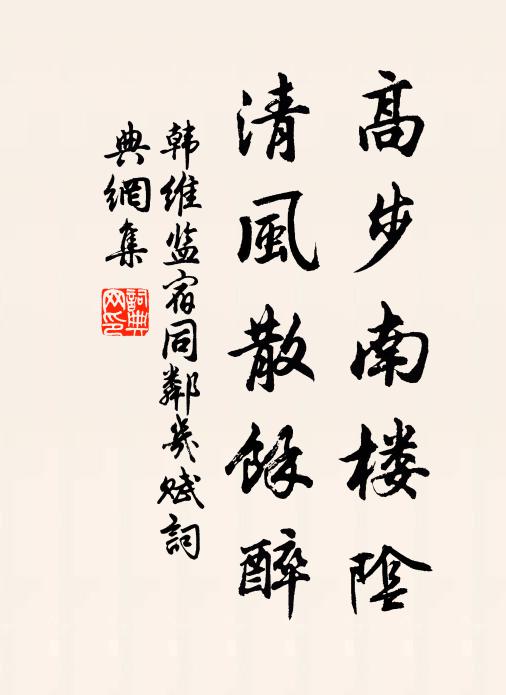 高步南楼陰
清風散餘醉
韩维监宿同鄰幾赋詞
典網集
詞典
网印